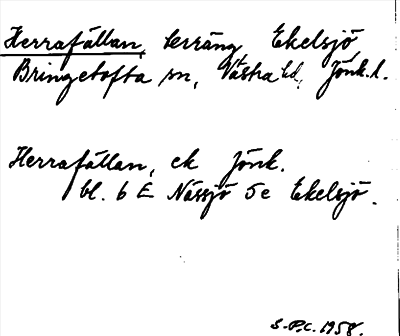 Herrafällan, terräng, Ekelsjö,
Bringetofta sn, Västra hd, Jönk. l.
Herrafällan, ek Jönk.
bl. 6 E Nässjö 5e Ekelsjö.
S.P.C. 1958.